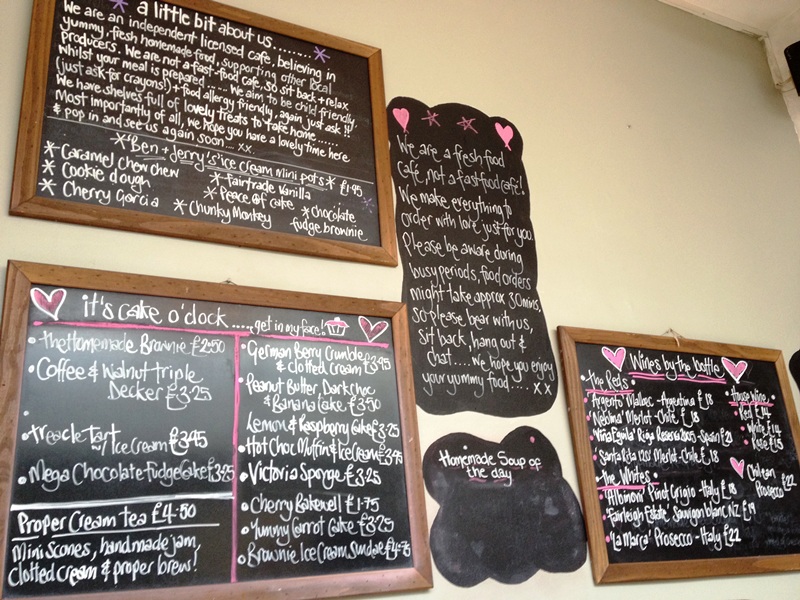 a little bit about us.........
We are an independent licensed cafe, believing in
yummy, fresh homemade food, supporting other local
producers. We are not a fast-food cafe, so sit back + relax
whilst your meal is prepared ...... We aim to be child friendly,
(just ask for crayons!) + food allergy friendly, again just ask !!
We have shelves full of lovely treats to take home......
Most importantly of all, we hope you have a lovely time here
& pop in and see us again soon... xx.
*'Ben + Jerry's' ice cream mini pots* £1.95
* Caramel chew chew
* Cookie dough
* Cherry Garcia
* Fairtrade Vanilla
* Peace of Cake
* Chunky Monkey
* Chocolate
fudge brownie
We are a fresh food
cafe, not a fast food cafe!
We make everything to
order with love just for you.
Please be aware during
busy periods, food orders
might take approx 30mins,
so please bear with us,
sit back, hang out &
chat.... we hope you enjoy
your yummy food.... xx
it's cake o'clock .....get in my face!
• The Homemade Brownie £2.50
• Coffee & Walnut Triple
Decker £3.25
• Treacle Tart
/Ice Cream £3.45
• Mega Chocolate Fudge Cake £3.25
Proper Cream Tea £4.50
Mini scones, handmade jam,
clotted cream & proper brew!
• German Berry Crumble
& clotted Cream £3.45
• Peanut Butter, Dark choc
& Banana Cake £3.50
Lemon & Raspberry Cake £3.25
• Hot Choc Muffin & Ice cream £3.45
• Victoria Sponge £3.25
• Cherry Bakewell £1.75
• Yummy Carrot Cake £3.25
• Brownie Ice Cream Sundae £4.75
Homemade Soup of
the day
Wines by the bottle
• The Reds •
'Argento' Malbec - Argentina £18
'Nebina' Merlot - Chile £18
Rioja Reserva 2005 - Spain £21
'Santa Rita 120' Merlot - Chile £18
• The Whites •
'Albinoni' Pinot Grigio - Italy £18
'Fairleigh Estate' Sauvignon blanc, NZ £19
'La Marca' Prosecco - Italy £22
House Wine
Red £14
White £14
Rose £15
Chilean
Prosecco £22